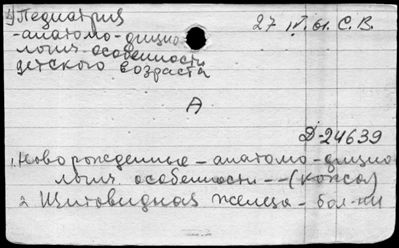 1) Педиатрия
- анатомо-физио
логич. особенности
детского возраста
27 IV. 61. С.В.
А
Д-24639
1. Новорожденные - анатомо-физио
логич. особенности -- (кожа)
2. Щитовидная железа - бол-ни